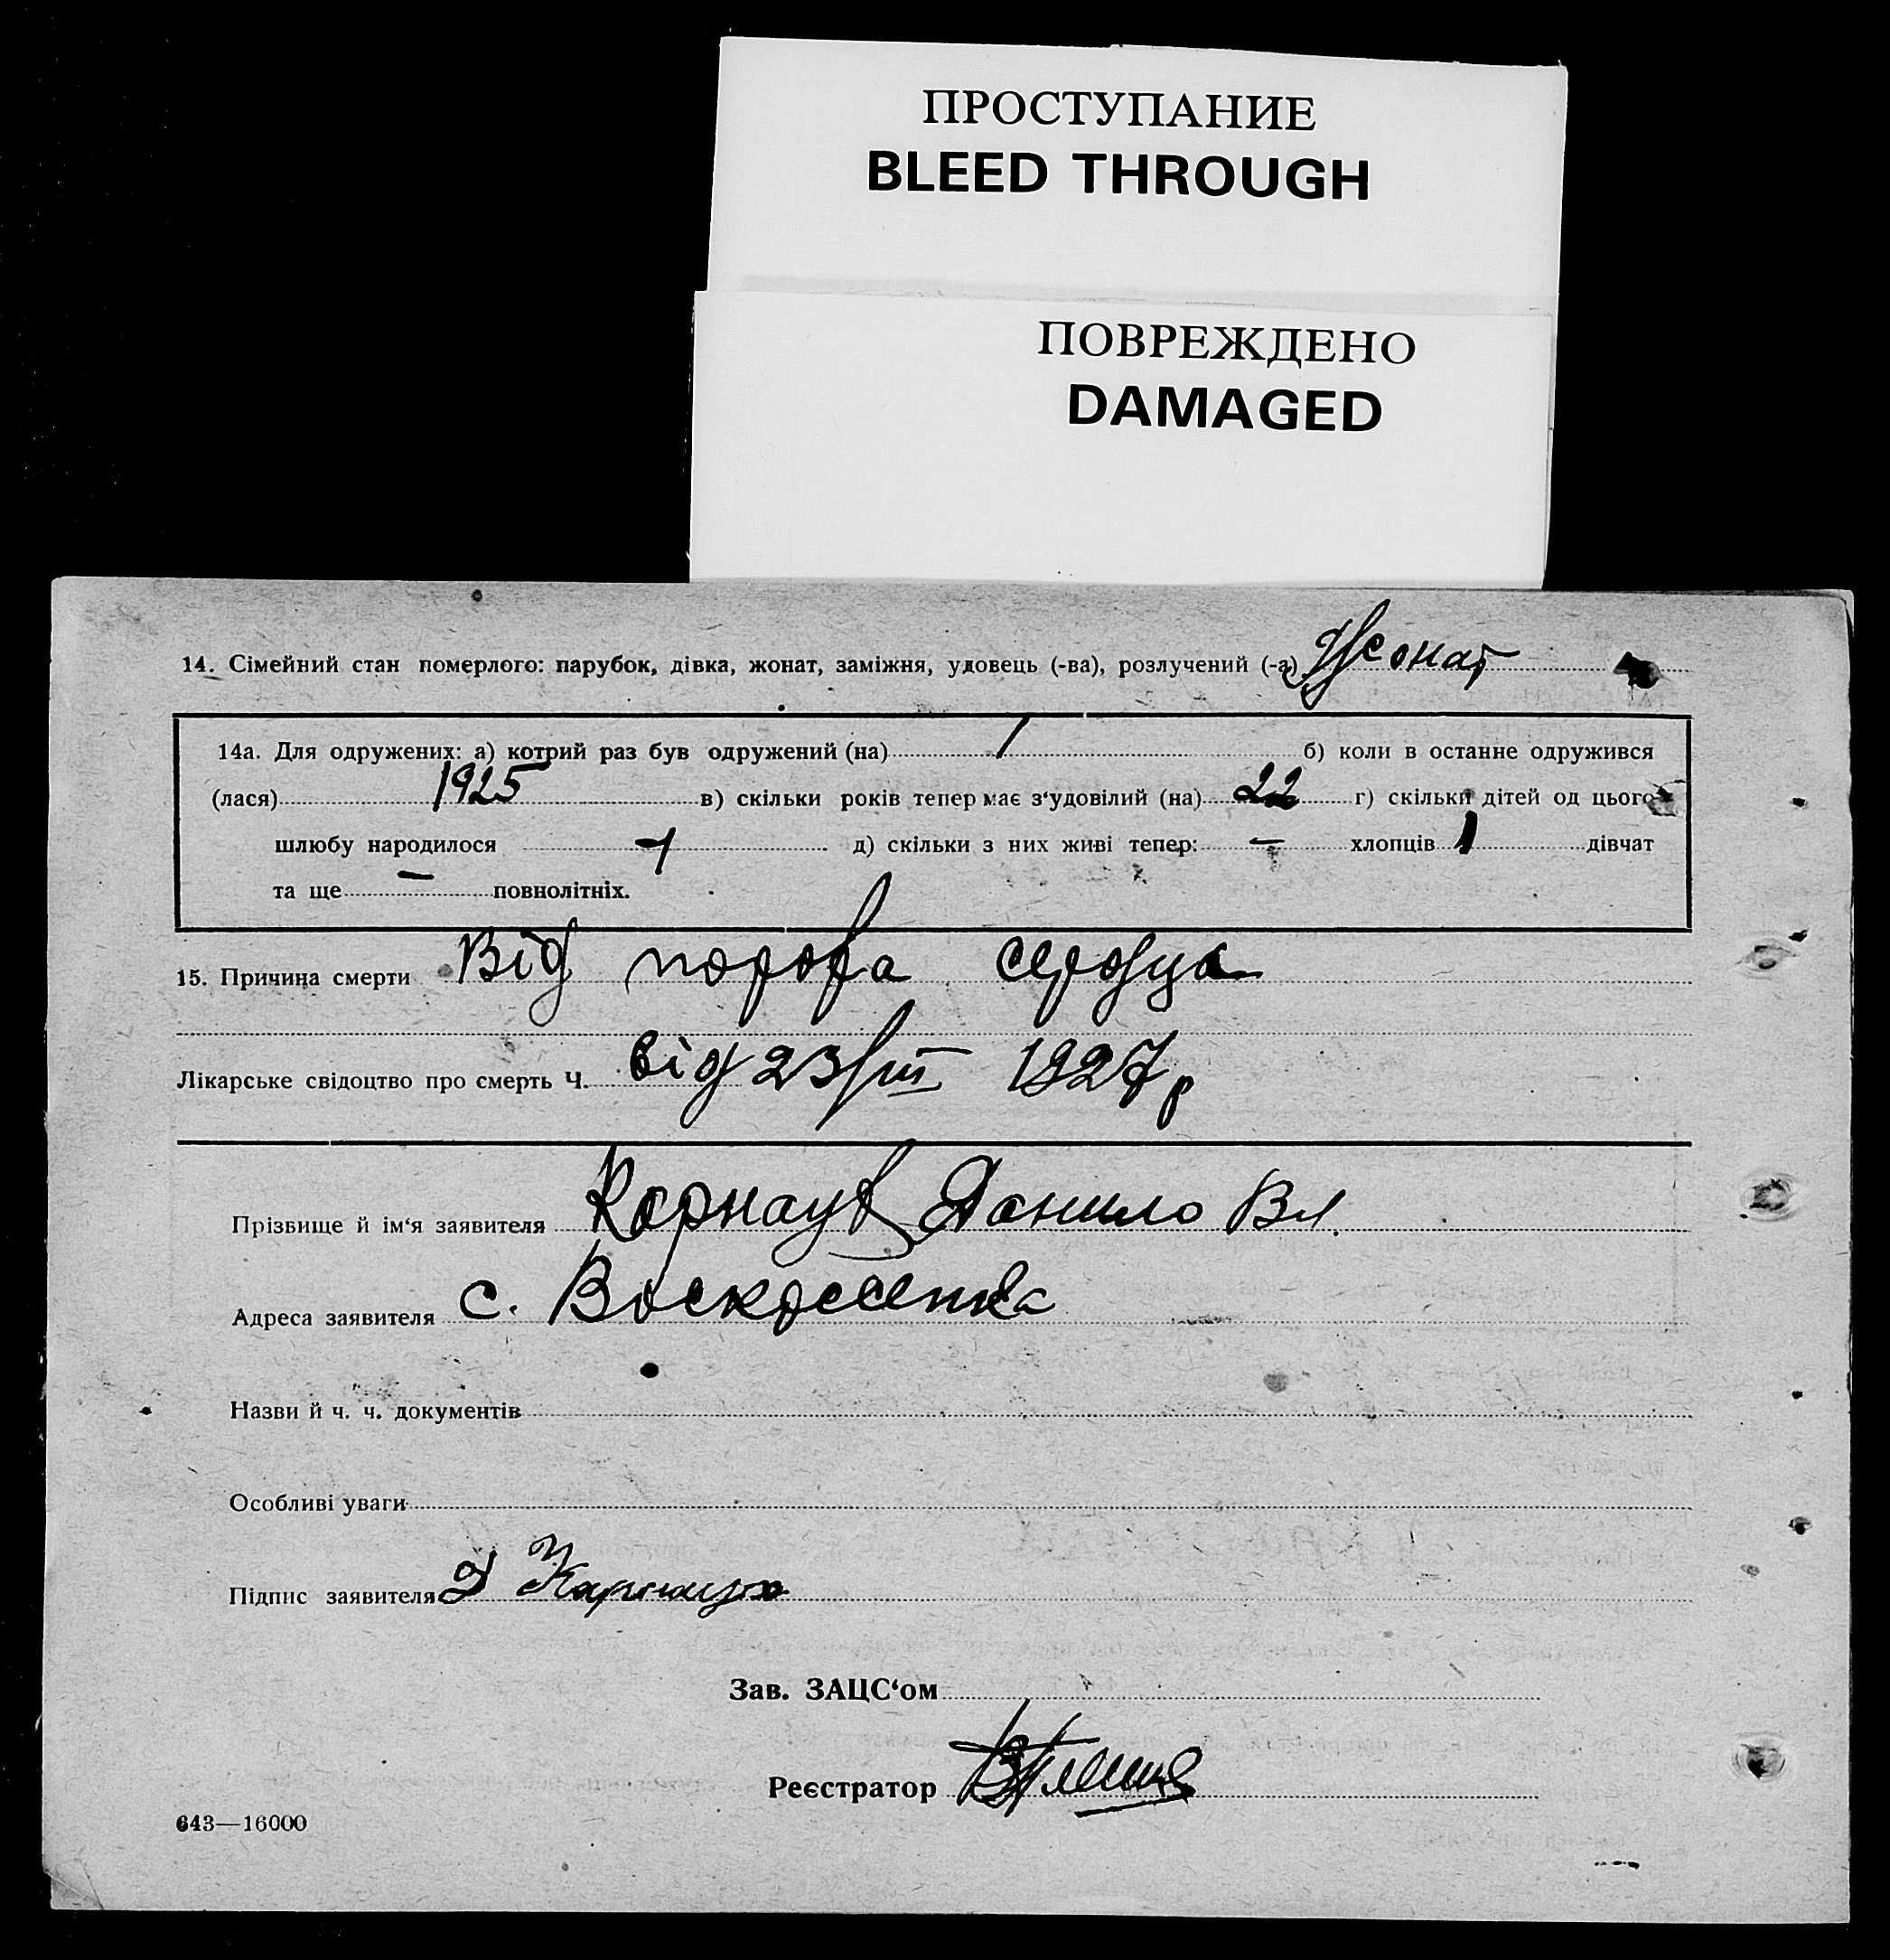 ПРОСТУПАНИЕ
BLEED THROUGH
ПОВРЕЖДЕНО
DAMAGED
14. Сімейний стан померлого: парубок, дівка, жонат, заміжня, удовець (-ва), розлучений (-а) Жонат
14а. Для одружених: а) котрий раз був одружений (на) 1 б) коли в останне одружився
(лася) 1925 в) скільки років тепер має з'удовілий (на) 22 г) скільки дітей од цього
шлюбу народилося 1 д) скільки з них живі тепер: — хлопців 1 дівчат
та ще — повнолітніх.
15. Причина смерти Від порока сердца
Лікарське свідоцтво про смерть Ч. від 23/III 1927 р
Прізвище й ім'я заявителя Данило Вл.
Адреса заявителя с. Воскресенка
Назви й ч. ч. документів
Особливі уваги
Підпис заявителя Д Карнаух
Зав. ЗАЦС'ом
Реєстратор
643—16000